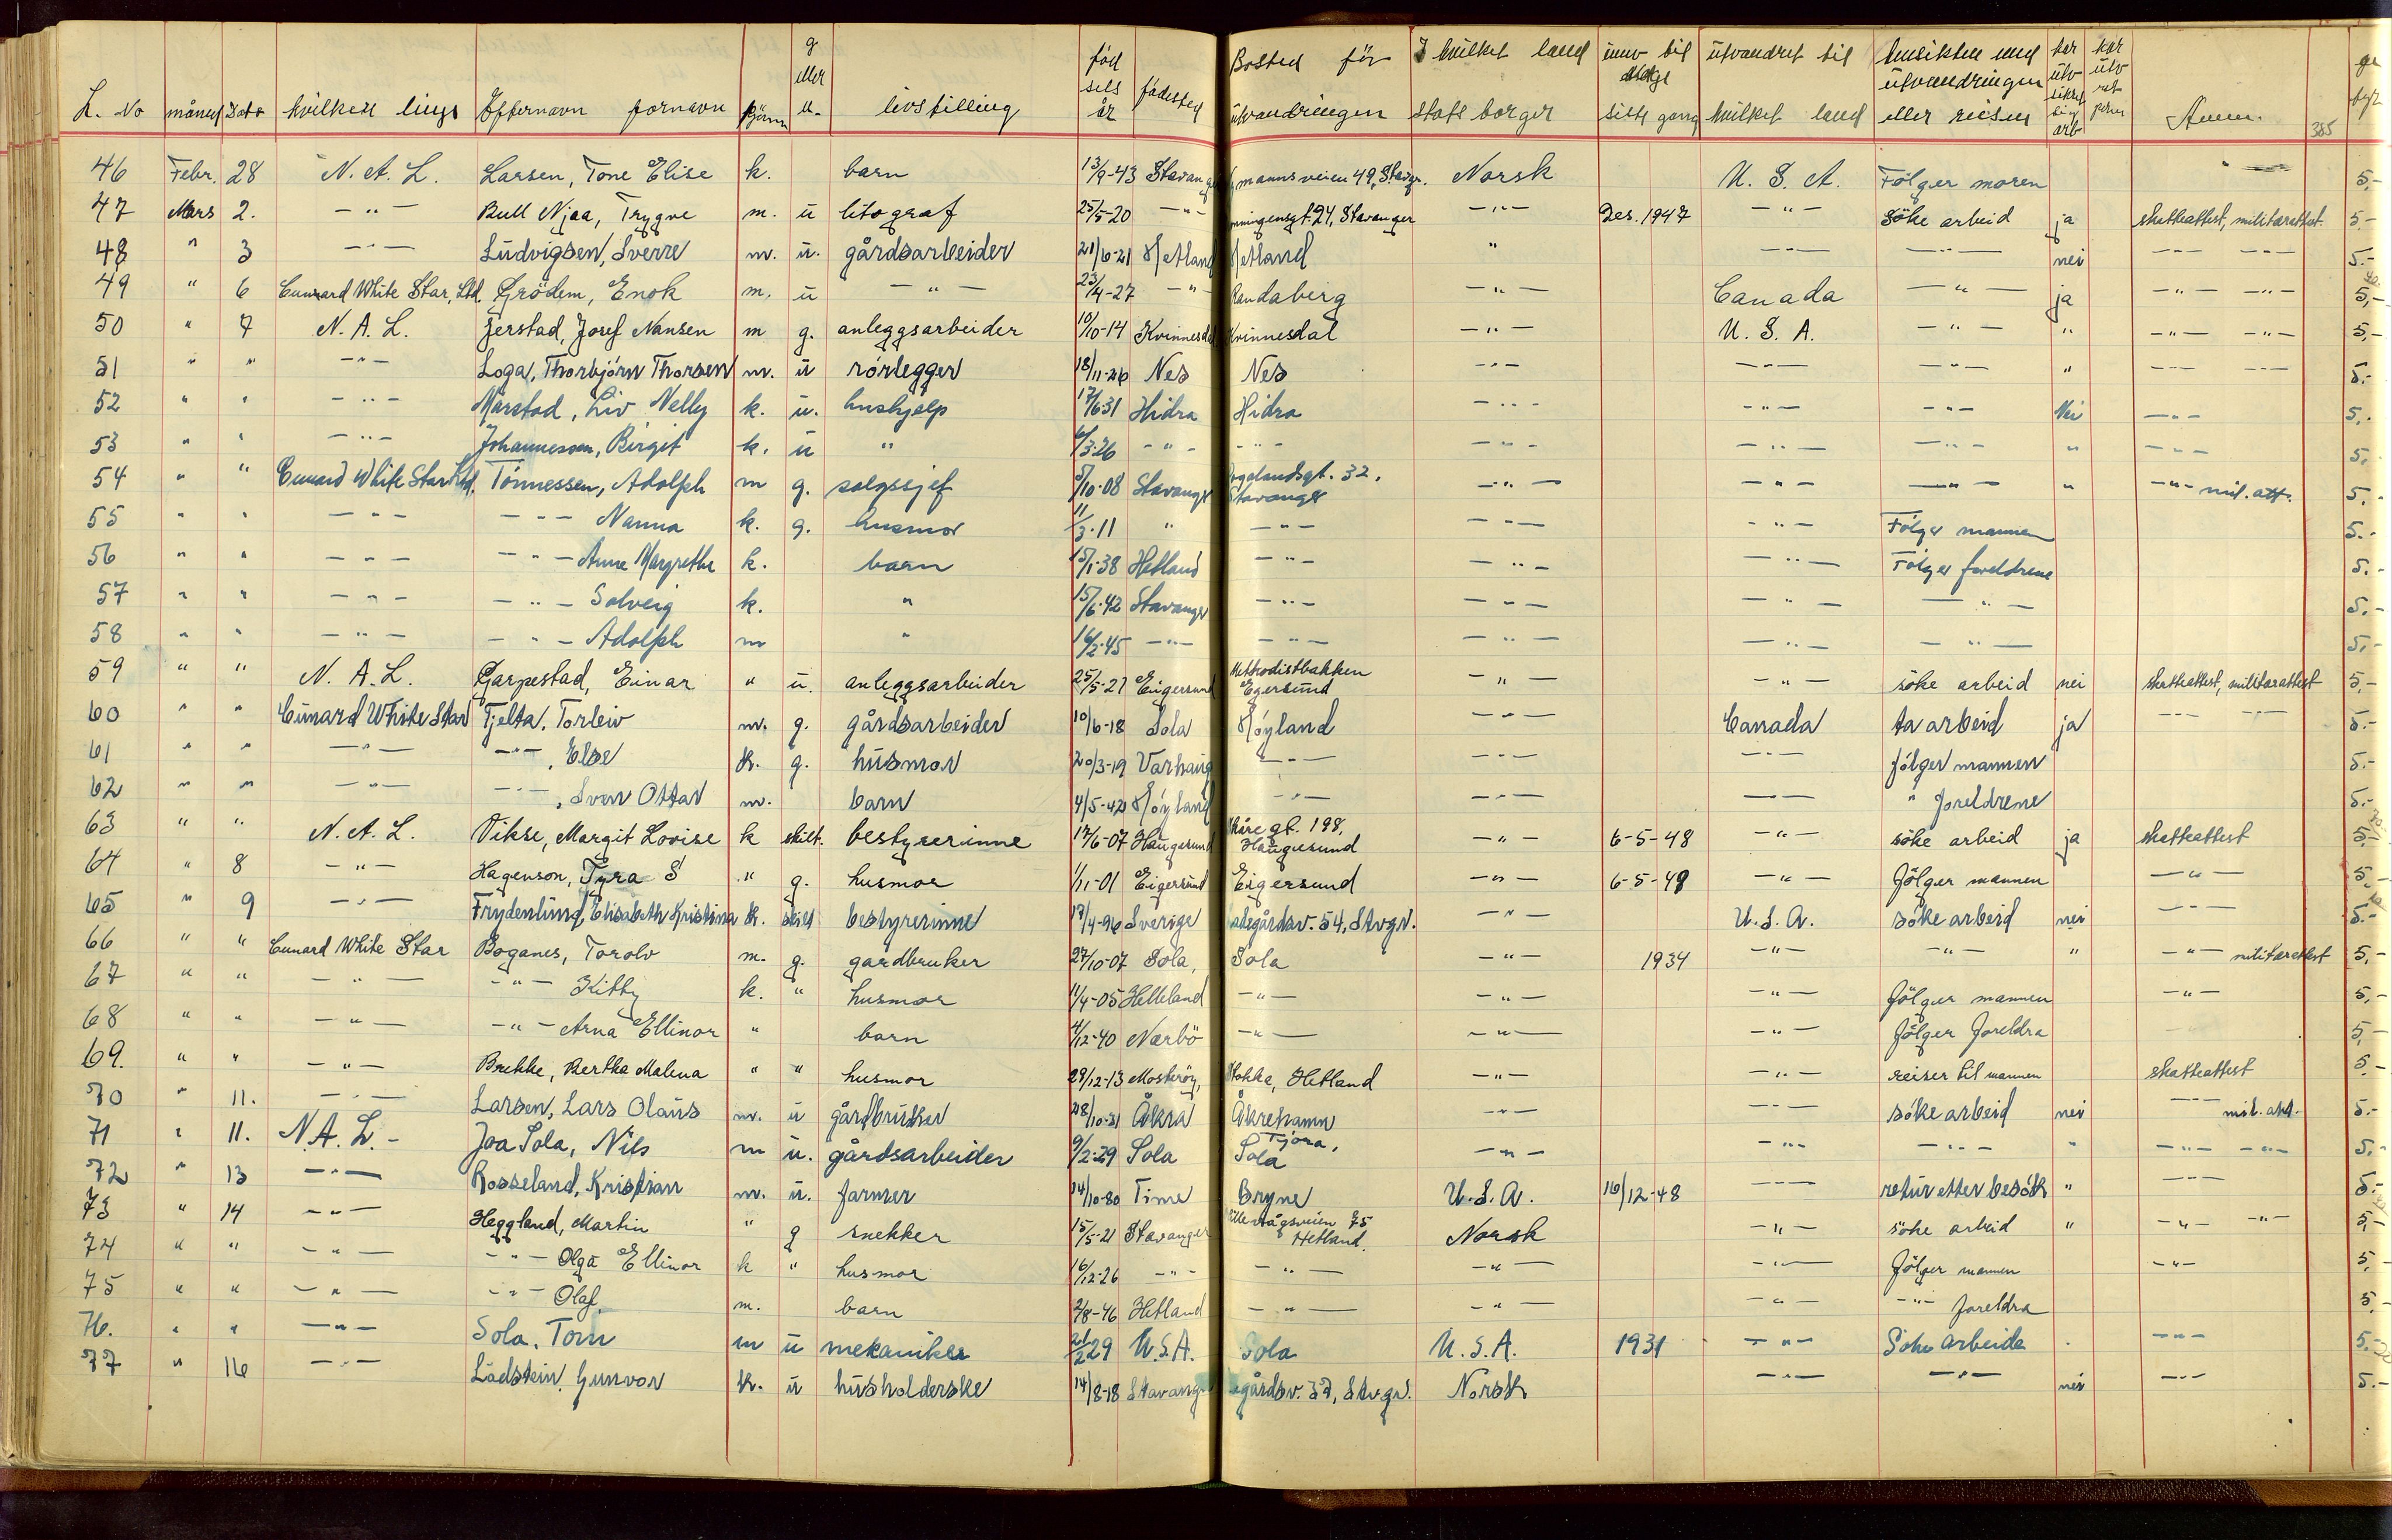 L. No måned Dato hvilken linje Efternavn fornavn kjønn g eller u. livsstilling fødselsår fødested Bosted før utvandringen I hvilket land statsborger innv til Norge siste gang utvandret til hvilket land hensikten med utvandringen eller reisen har utv sikret sig arb har utv ret penn Anm. 385
46 Febr. 28 N. A. L. Larsen, Tone Elise k. barn 13/9-43 Stavang manns veien 49, Stavgr. Norsk U. S. A. Følger moren - " - 5,-
47 Mars 2. - " - Bull Njaa, Trygve m. u litograf 25/5-20 - " - nningensgt. 24, Stavanger - " - Des. 1947 - " - Söke arbeid ja skatteattest, militærattest 5,-
48 " 3 - " - Ludvigsen, Sverre m. u. gårdsarbeider 21/6-21 Hetland Hetland " - " - - " - nei - " - - " - 5.-
49 " 6 Cunnard White Star, Ltd. Grödem, Enok m. u - " - 23/4-27 - " - Randaberg - " - Canada - " - ja - " - - " - 5,-
50 " 7 N. A. L. Jerstad, Josef Nansen m g. anleggsarbeider 10/10-14 Kvinnesdal Kvinnesdal - " - U. S. A. - " - " - " - - " - 5,-
51 " " - " - Loga, Thorbjörn Thorsen m. u rörlegger 18/11-26 Nes Nes - " - - " - - " - " - " - - " - 5.-
52 " " - " - Mårstad, Liv Nelly k. u. hushjelp 17/6 31 Hidra Hidra - " - - " - - " - Nei - " - 5,-
53 " " - " - Johannessen, Birgit k. u " 6/3.26 - " - - " - - " - - " - - " - " - " - 5,
54 " " Cunard White Star Ltd. Tönnessen, Adolph m g. salgssjef 5/10-08 Stavanger ogalandsgt. 32, Stavanger - " - - " - - " - " - " - mil. att. 5,-
55 " " - " - - " - Nanna k. g. husmor 11/3-11 " - " - - " - - " - Følger mannen 5.-
56 " " - " - - " - Anne Margrethe k. barn 15/1-38 Hetland - " - - " - - " - Følger foreldrene 5.-
57 " " - " - - " - Solveig k. " 15/6-42 Stavanger - " - - " - - " - - " - 5.-
58 " " - " - - " - Adolph m " 16/2-45 - " - - " - - " - - " - - " - 5,-
59 " " N. A. L. Garpestad, Einar " u. anleggsarbeider 25/5-27 Eigersund Methodistbakken Egersund - " - - " - söke arbeid nei skatteattest, militærattest 5,-
60 " " Cunard White Star Tjelta, Torleiv m. g. gårdsarbeider 10/6-18 Sola Höyland - " - Canada ta arbeid ja - " - - " - 5.-
61 " " - " - - " - , Else k. g. husmor 20/3-19 Varhaug - " - - " - - " - følger mannen 5.-
62 " " - " - - " - , Sven Ottar m. barn 4/5-42 Höyland - " - - " - - " - " foreldrene 5.-
63 " " N. A. L. Vikse, Margit Lovise k skilt. bestyrerinne 17/6-07 Haugesund Skåregt. 198, Haugesund - " - 6-5-48 - " - söke arbeid ja skatteattest 5,-
64 " 8 - " - Hagenson, Tyra S " g. husmor 1/11-01 Eigersund Eigersund - " - 6-5-48 - " - følger mannen - " - 5,-
65 " 9 - " - Frydenlund, Elisabeth Kristina k. skilt bestyrerinne 17/4-96 Sverige ladegårdsv. 54, Stvgr. - " - U. S. A. söke arbeid nei - " - 5.-
66 " " Cunard White Star Boganes, Torolv m. g. gardbruker 27/10-07 Sola, Sola - " - 1934 - " - - " - " - " - militærattest 5,-
67 " " - " - - " - Kitty k. " husmor 11/4-05 Helleland - " - - " - - " - følger mannen - " - 5,-
68 " " - " - - " - Arna Ellinor " barn 4/12-40 Nærbö - " - - " - - " - følger foreldra 5,-
69. " " - " - Brekke, Bertha Malena " " husmor 29/12-13 Mosteröy, Stokka, Hetland - " - - " - reiser til mannen skatteattest 5.-
70 " 11. - " - Larsen, Lars Olaus m. u gårdbruker 28/10-21 Åkra Åkrehamn - " - - " - söke arbeid nei - " - mil. att. 5.-
71 " 11. N. A. L. - Joa Sola, Nils m u. gårdsarbeider 9/2-29 Sola Tjora, Sola - " - - " - - " - " - " - - " - 5,-
72 " 13 - " - Rosseland, Kristian m. u. farmer 14/10-80 Time Bryne U. S. A. 16/12-48 - " - retur etter besök " - " - 5.-
73 " 14 - " - Heggland, Martin " g snekker 15/5-21 Stavanger Hillevågsveien 75 Hetland. Norsk - " - söke arbeid " - " - - " - 5,-
74 " " - " - - " - Olga Ellinor k " husmor 16/12-26 - " - - " - - " - - " - følger mannen - " - 5,-
75 " " - " - - " - Olaf. m. barn 2/8-46 Hetland - " - - " - - " - - " - foreldra 5,-
76. " " - " - Sola, Tom m u mekaniker 26/2 29 U.S.A. Sola U.S.A. 1931 - " - Söke arbeide - " - 5,-
77 " 16 - " - Lådstein, Gunvor k. u husholderske 14/8-18 Stavanger egårdsv. 37, Stvgr. Norsk - " - - " - nei - " - 5.-